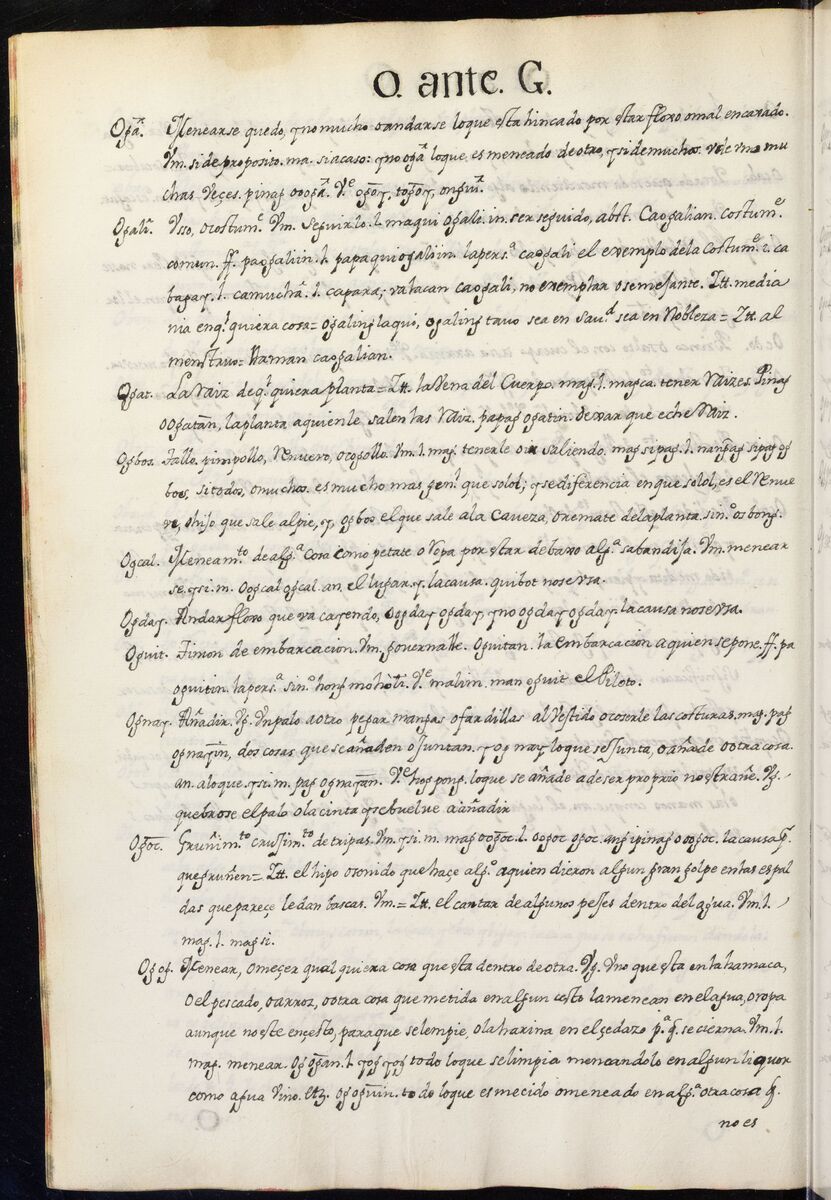 O. ante. G.
Oga. Menearse quedo, y no mucho o andarse lo que esta hincado por estar floxo o mal encaxado.
Vm. si de proposito. ma. si acaso: y no oga lo que, es meneado de otro, y si de muchos. vide vna mu
chas veçes. pinag o oga. Ve ogoy, togoy,
Ogali. Vsso, o costume. Vm. seguirlo. l. maqui ogali. in. ser seguido, abst. Caogalian. costume.
comun. ff. paogaliin. l. papaquiogaliin. la persa. caogali el exemplo de la costume. i. ca
bagay. l. camucha. l. capara, ualacan caogali, no exemplar o semejante. Itt. media
nia en ql quiera cosa = ogaling laqui, ogaling tauo sea en saud. sea en Nobleza = Itt. al
menstruo = Naman caogalian.
Ogat. La Raiz de ql quiera planta = Itt. la Vena del Cuerpo. mag. l. magca. tener Raizes. Pinag
o ogatan, la planta a quien le salen las Raiz. papag ogatin. dexar que eche Raiz.
Ogbos. Tallo. pimpollo, renuevo, o cogollo. Vm. l. mag. tenerle o ir saliendo. magsipag. l. nangagsipag og
bos, si todos, o muchos. es mucho mas genl. que solol; y se diferencia en que solol, es el renue
vo, o hijo que sale al pie, y ogbos el que sale a la caveza, o remate de la planta. sino. osbong.
Ogcal. Meneamto. de alga. Cosa como petate o Ropa por estar debaxo alga. sabandija. Vm. menear
se. y si. m. Oogcal ogcal. an. el lugar. y la causa. quibot no se usa.
Ogday. Andar floxo que va cayendo, oogday ogday, y no ogday ogday. la causa no se usa.
Oguit. Timon de embarcacion. Vm. gouernalle. Oguitan. la embarcacion a quien se pone. ff. pa
oguitin la persa. sino. Ve malim. man oguit el Piloto.
Ognay. Añadir. Vg. Vn palo a otro pegar mangas o fardillas al Vestido o coserle las costuras. mag. pag
ognayin, dos cosas que se añaden o juntan. y og nay lo que se Junta, o añade o otra cosa.
an. a lo que. y si. m. pag ognayan. Ve hogpong. lo que se añade a de ser proprio no estrañe. Vg.
quebrose el palo o la cinta y se buelue a añadir
Ogoc. Gruñimto. crujimto. de tripas. Vm. y si. m. mag oogoc. l. oogoc ogoc. ang ipinag o ogoc. la causa pr.
que gruñen = Itt. el hipo o sonido que haçe algo. a quien dieron algun gran golpe en las espal
das que pareçe le dan bascas. Vm. = Itt. el cantar de algunos peses dentro del agua. Vm. l.
mag. l. magsi.
Ogog. Menear, o meçer qual quiera cosa que esta dentro de otra. Vg. Vno que esta en la hamaca,
o el pescado, o arroz, o otra cosa que metida en algun cesto la menean en el agua, o ropa
aunque no este en çesto, para que se limpie, o la harina en el çedazo pa. q. se cierna. Vm. l.
mag. menear. Og ogan. l. y og yog todo lo que se limpia meneandolo en algun liquor
como agua Vino. Etz. og oguin. todo lo que es mecido o meneado en alga. otra cosa q.
no es